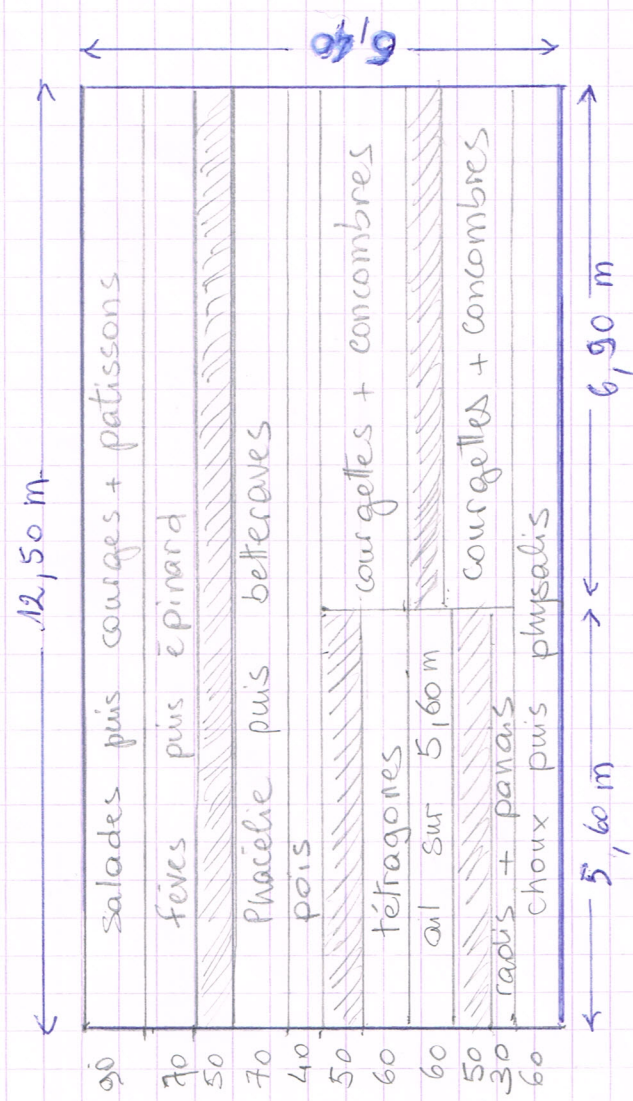 12,50 m
90 salades puis courges + patissons
70 fèves puis épinard
50
70 Phacélie puis betteraves
40 pois
50 courgettes + concombres
60 tétragones
60 ail sur 5,60m
50 courgettes + concombres
30 radis + panais
60 choux puis physalis
5,60 m
6,90 m
6,40